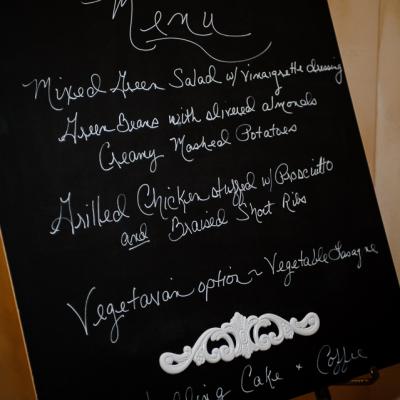 Menu
Mixed Green Salad w/ vinaigrette dressing
Green Beans with slivered almonds
Creamy Mashed Potatoes
Grilled Chicken stuffed w/ Prosciutto
and Braised Short Ribs
Vegetarian option ~ Vegetable Lasagne
Cake + Coffee